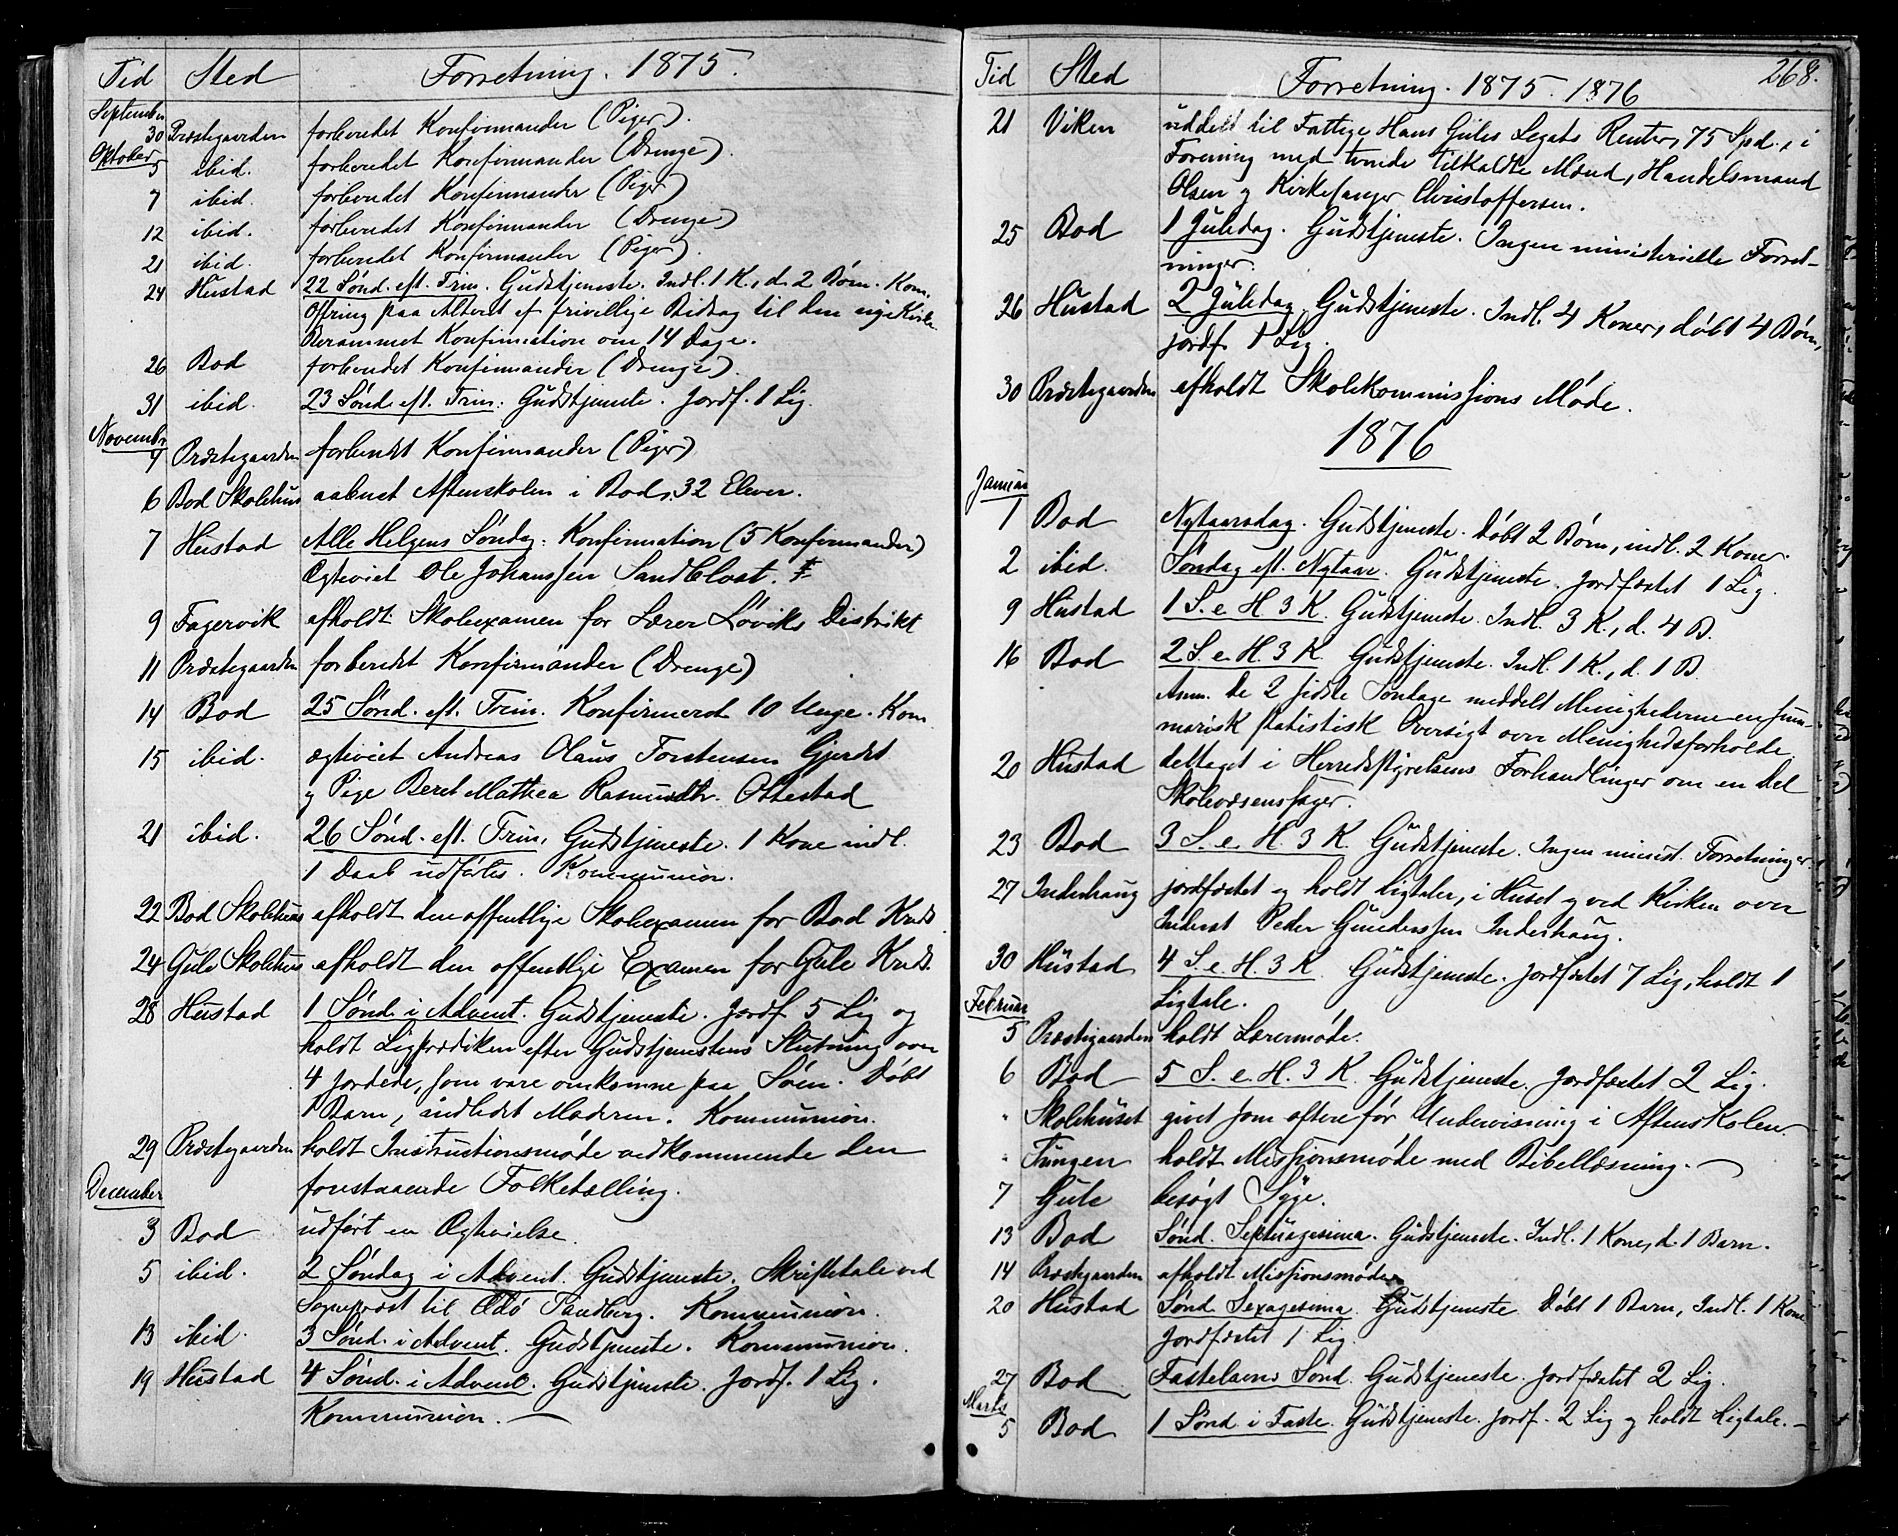 Tid Sted Forretning. 1875.
September
30 Præstegaarden forberedet Konfirmander (Piger).
Oktober
5 ibid. forberedet Konfirmander (Drenge).
7 ibid. forberedet Konfirmander (Piger)
12 ibid. forberedet Konfirmander (Drenge)
21 ibid. forberedet Konfirmander (Piger).
24 Hustad 22 Sønd. eft. Trin. Gudstjeneste. Indl. 1 K., d. 2 Børn. Kom.
Offring paa Alteret af frivillige Bidrag til den nye Kirke.
Berammet Konfirmation om 14 Dage.
26 Bod forberedet Konfirmander (Drenge).
31 ibid. 23 Sønd. eft. Trin. Gudstjeneste. Jordf. 1 Lig.
November
4 Præstegaarden forberedet Konfirmander (Piger)
6 Bod Skolehus aabnet Aftenskolen i Bod, 32 Elever.
7 Hustad Alle Helgens Søndag. Konfirmation (5 Konfirmander)
Ægteviet Ole Johanssen Sandblaat. ‡
9 Fagervik afholdt Skoleexamen for Lærer Løviks Distrikt
11 Præstegaarden forberedet Konfirmander (Drenge)
14 Bod 25 Sønd. eft. Trin. Konfirmeret 10 Unge. Kom
15 ibid. ægteviet Andreas Olaus Torstensen Gjerdet
og Pige Beret Mathea Rasmusdtr. Ottestad
21 ibid. 26 Sønd. eft. Trin. Gudstjeneste. 1 Kone indl.
1 Daab udførtes. Kommunion.
22 Bod Skolehus afholdt den offentlige Skoleexamen for Bod Kreds.
24 Gule Skolehus afholdt den offentlige Examen for Gule Kreds.
28 Hustad 1 Sønd. i Advent. Gudstjeneste. Jordf. 5 Lig og
holdt Ligprædiken efter Gudstjenestens Slutning over
4 Jordede, som vare omkomne paa Søen. Døbt
1 Barn, indledet Moderen. Kommunion.
29 Præstegaarden holdt Instructionsmøde vedkommende den
forestaaende Folketælling.
December
3 Bod udført en Ægtevielse.
5 ibid. 2 Søndag i Advent. Gudstjeneste. Skriftetale ved
Sognepræst til Ædø Sandberg. Kommunion.
13 ibid. 3 Sønd. i Advent. Gudstjeneste. Kommunion.
19 Hustad 4 Sønd. i Advent. Gudstjeneste. Jordf. 1 Lig.
Kommunion. —
268.
Tid Sted Forretning. 1875. 1876
21 Viken uddelt til Fattige Hans Gules Legats Renter, 75 Spd., i
Forening med tvende tilkaldte Mænd, Handelsmand
Olsen og Kirkesanger Christoffersen.
25 Bod 1 Juledag. Gudstjeneste. Ingen ministerielle Forret-
ninger.
26 Hustad 2 Juledag. Gudstjeneste. Indl. 4 Koner, døbt 4 Børn,
jordf. 1 Lig.
30 Præstegaarden afholdt Skolekommissions Møde.
1876
Januar
1 Bod Nytaarsdag. Gudstjeneste. Døbt 2 Børn, indl. 2 Koner.
2 ibid. Søndag eft. Nytaar. Gudstjeneste. Jordfæstet 1 Lig.
9 Hustad 1 S. e. H. 3 K. Gudstjeneste. Indl. 3 K., d. 4 B.
16 Bod 2 S. e. H. 3 K. Gudstjeneste. Indl. 1 K., d. 1 B.
Anm. De 2 sidste Søndage meddelt Menighederne en sum-
marisk statistisk Oversigt over Menighedsforholde
20 Hustad deltaget i Herredsstyrelsens Forhandlinger om en Del
Skolevæsenssager.
23 Bod 3 S. e. H. 3 K. Gudstjeneste. Ingen minist. Forretninger.
27 Inderhaug jordfæstet og holdt Ligtaler, i Huset og ved Kirken over
Inderst Peder Gunderssen Inderhaug.
30 Hustad 4 S. e. H. 3 K. Gudstjeneste. Jordfæstet 7 Lig, holdt 1
Ligtale.
Februar
5 Præstegaarden holdt Lærermøde.
6 Bod 5 S. e. H. 3 K. Gudstjeneste. Jordfæstet 2 Lig.
" Skolehuset givet som oftere før Undervisning i Aftenskolen.
" Tungen holdt Missionsmøde med Bibellæsning. —
7 Gule besøgt Syge.
13 Bod Sønd. Septuagesima. Gudstjeneste. Indl. 1 Kone, d. 1 Barn.
14 Præstegaarden afholdt Missionsmøde
20 Hustad Sønd. Sexagesima. Gudstjeneste. Døbt 1 Barn, Indl. 1 Kone
Jordfæstet 1 Lig.
27 Bod Fastelavns Sønd. Gudstjeneste. Jordfæstet 2 Lig.
Marts
5 Bod 1 Sønd i Faste. Gudstjeneste. Jordf. 2 Lig og holdt Ligtale. —